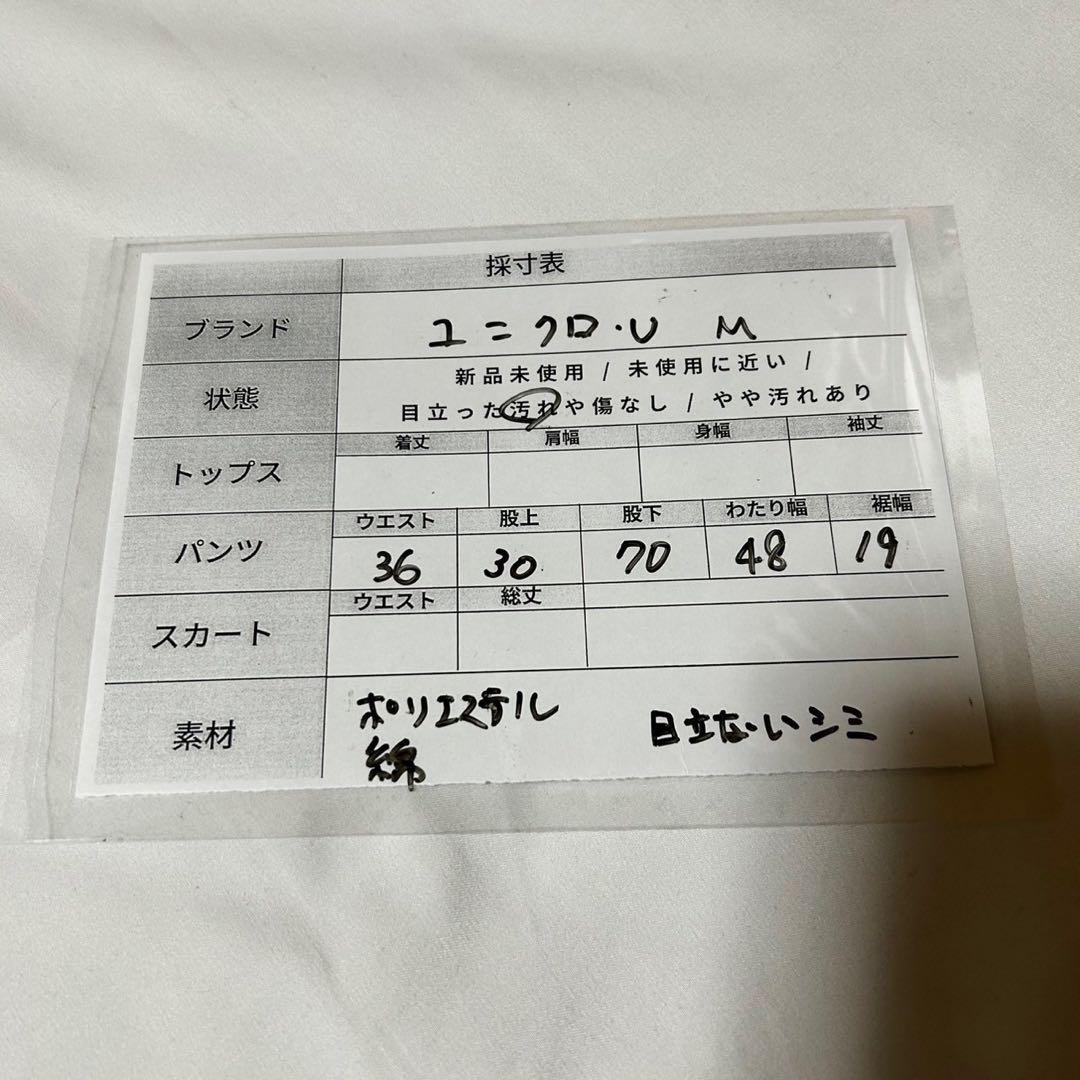 採寸表
ブランド ユニクロ・U M
状態 新品未使用 / 未使用に近い /
目立った汚れや傷なし / やや汚れあり
トップス 着丈 肩幅 身幅 袖丈
パンツ ウエスト 股上 股下 わたり幅 裾幅
36 30 70 48 19
スカート ウエスト 総丈
素材 ポリエステル 目立ないシミ
綿